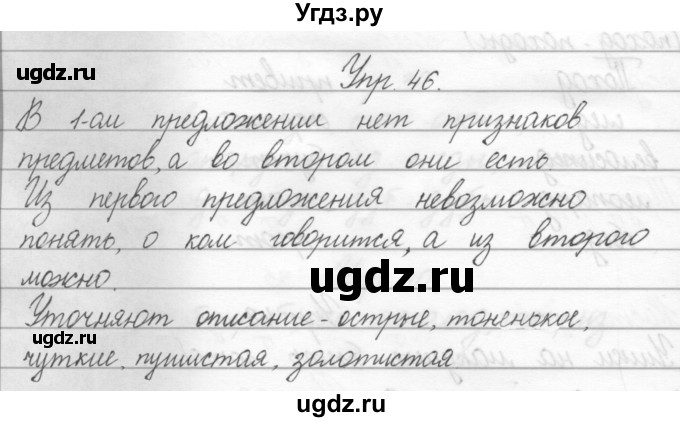 Угдз.ру
ugdz.ru ugdz.ru
Упр. 46.
В 1-ом предложении нет признаков
предметов, а во втором они есть
Из первого предложения невозможно
понять, о ком говорится, а из второго
можно.
ugdz.ru
ugdz.ru ugdz.ru
Уточняют описание - острые, тоненькое,
чуткие, пушистая, золотистая
ugdz.ru ugdz.ru
ugdz.ru